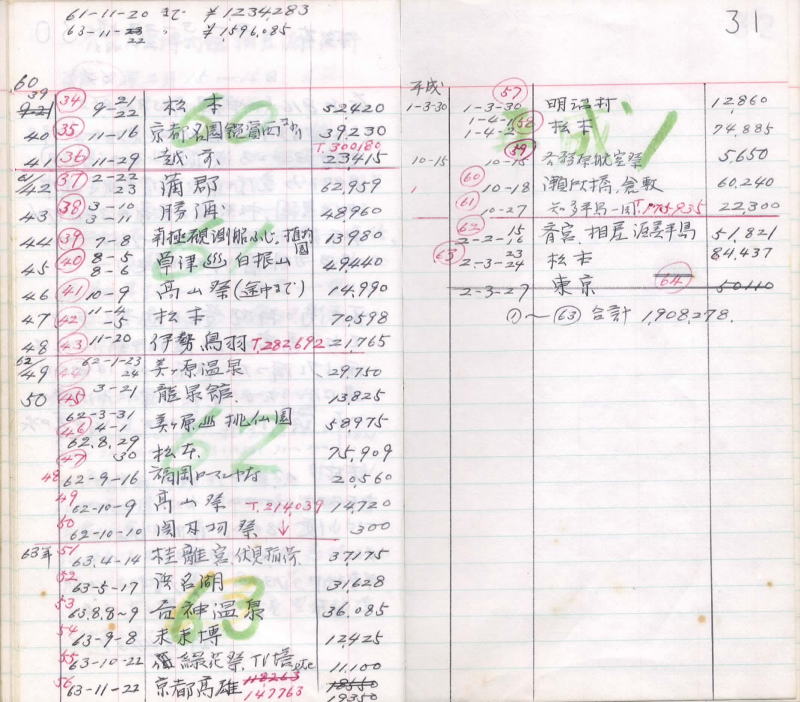 61-11-20 まで ¥1,234,283
63-11-23 〃 ¥1,596,085
22
31
60
39
9-21 34 9-21 22 松本 52,420
40 35 11-16 京都名園 39,230
T.300180
41 36 11-29 越前 23,415
61
42 37 2-22 23 蒲郡 62,959
43 38 3-10 3-11 勝浦 48,960
44 39 7-8 南極観測船 13,980
45 40 8-5 8-6 草津 白根山 49,440
46 41 10-9 高山祭(途中まで) 14,990
47 42 11-4 -5 松本 70,598
48 43 11-20 伊勢鳥羽 T.282,692 21,765
62
49 44 62-1-23 24 美ヶ原温泉 29,750
50 45 3-21 龍泉館 13,825
62-3-31
46 4-1 美ヶ原 桃仙園 58,975
62.8.29
47 30 松本 75,909
48 62-9-16 福岡 20,560
49 62-10-9 高山祭 T.214,039 14,720
50 62-10-10 祭 ↓ 300
63年 51 63.4-14 桂離宮、伏見稲荷 37,175
52 63-5-17 浜名湖 31,628
53 63.8.8~9 温泉 36,085
54 63-9-8 未来博 12,425
55 63-10-22 緑花祭、TV塔 etc 11,100
56 63-11-22 京都高雄 118263 147763 18550 19350
60
61
62
63
平成
平成1
57
1-3-30 1-3-30 明治村 12,860
1-4-1 58
1-4-2 松本 74,885
59
10-15 10-15 航空祭 5,650
60
10-18 瀬戸大橋、倉敷 60,240
61
10-27 知多半島一周 T.175,935 22,300
62 15
2-2-16 渥美半島 51,821
63 23
2-3-24 松本 84,437
2-3-27 東京 64 50110
①~63 合計 1,908,278.